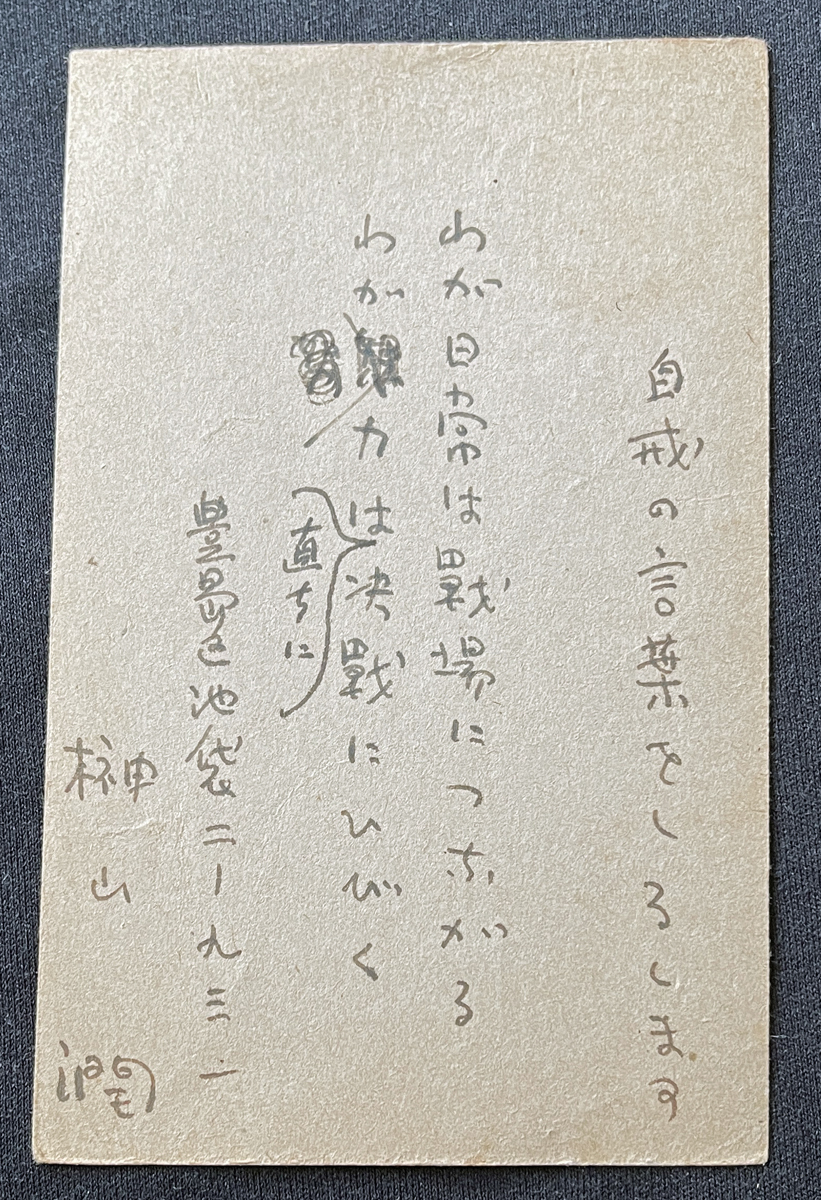 自戒の言葉をしるします
わが日常は戰場につながる
わが力は决戰にひびく
直ちに
豊島區池袋二ー九三一
榊山
潤